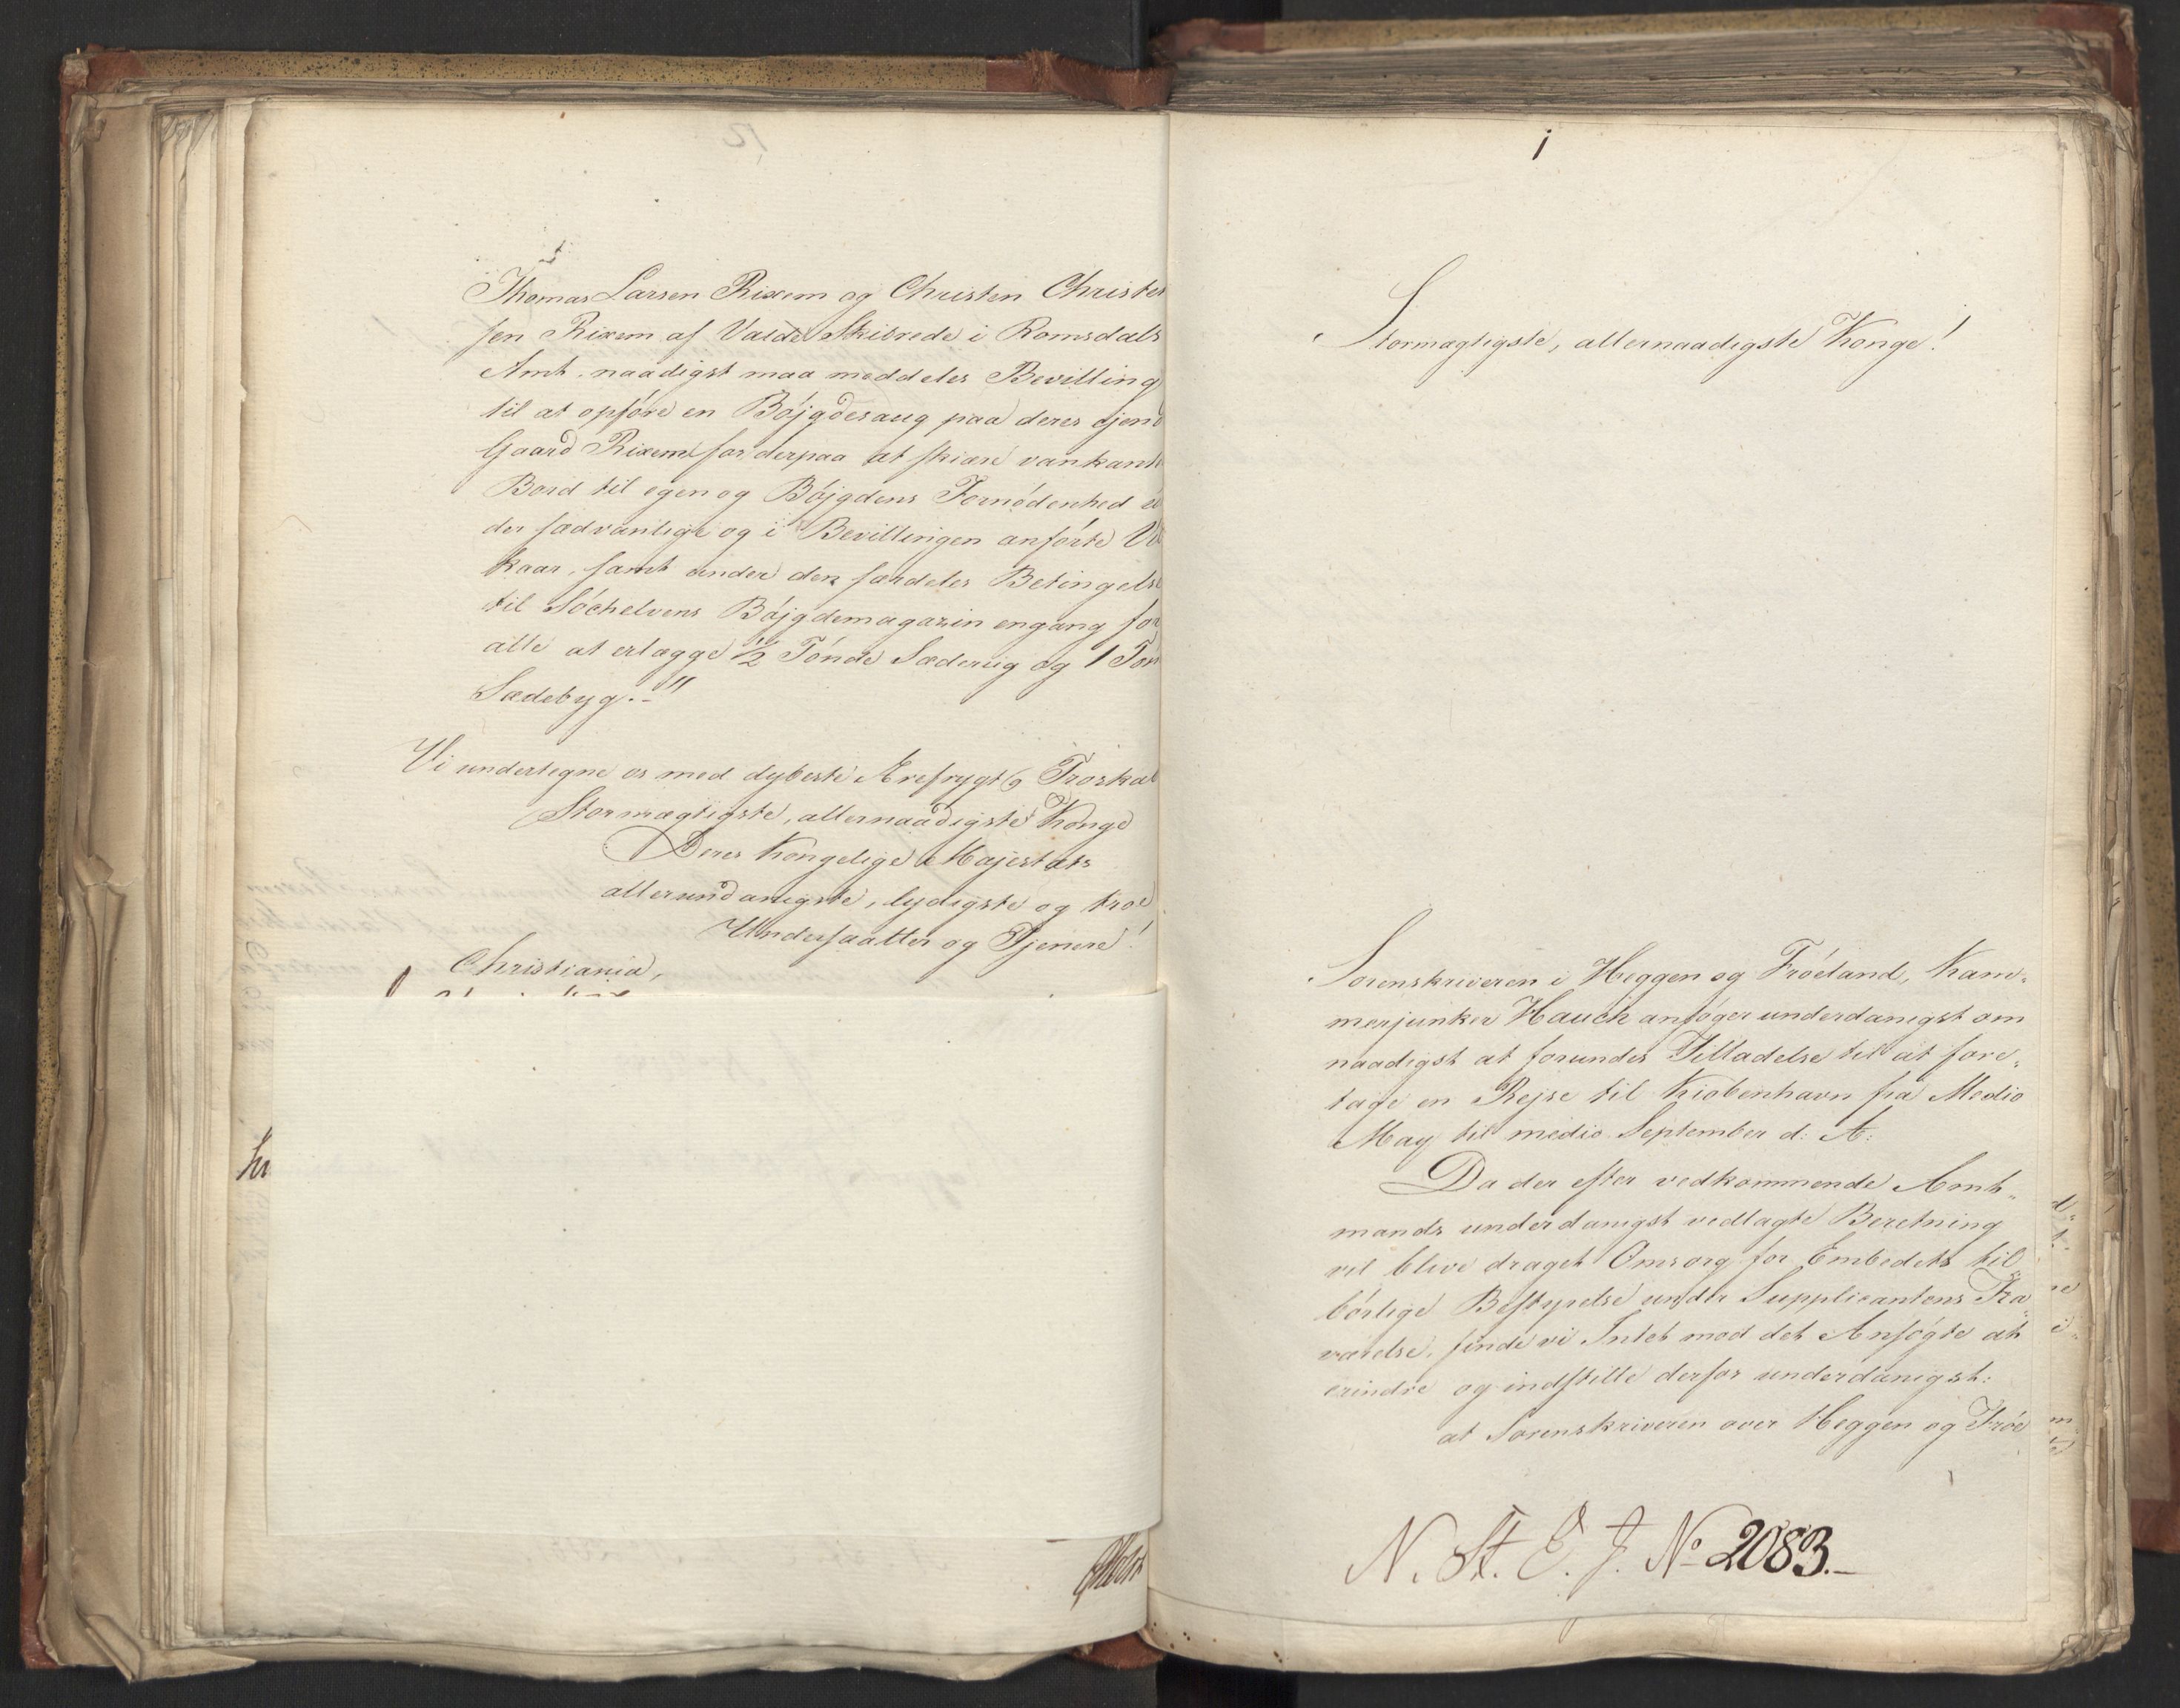 Thomas Larsen Rixem og Christen Christen
sen Rixem af Valde Skibrede i Romsdals
Amt, naadigst maa meddeles Bevilling
til at opføre en Bøjgdesaug paa deres ejend
Gaard Rixem for derpaa at skiære vankant
Bord til egen og Bøjgdens Fornødenhed u
der sædvanlige og i Bevillingen anførte Vil
kaar, samt under den særdeles Betingelse
til Søchelvens Bøjgdemagazin engang for
alle at erlægge ½ Tønde Sæderug og 1 Tøn
Sædebyg.-"
Vi undertegne os med dybeste Ærefrygt og Troskab
Stormægtigste, allernaadigste Konge
Deres Kongelige Majestæts
allerundanigste, lydigste og troe
Undersaatter og Tjenere!
Christiania,
1
Stormægtigste, allernaadigste Konge!
Sorenskriveren i Heggen og Frøeland, Kam-
merjunker Hauch ansøger underdanigst om
naadigst at forundes Tilladelse til at fore-
tage en Rejse til Kiøbenhavn fra Medio
May til medio September d: A:
Da der efter vedkommende Amt-
mands underdanigst vedlagte Beretning
vil blive draget Omsorg for Embedets til-
børlige Bestyrelse under Supplicantens Fra-
værelse, finde vi Intet mod det Ansøgte at
erindre og indstille derfor underdanigst:
at Sorenskriveren over Heggen og Frøe
N. St. E. J. No 2083.-